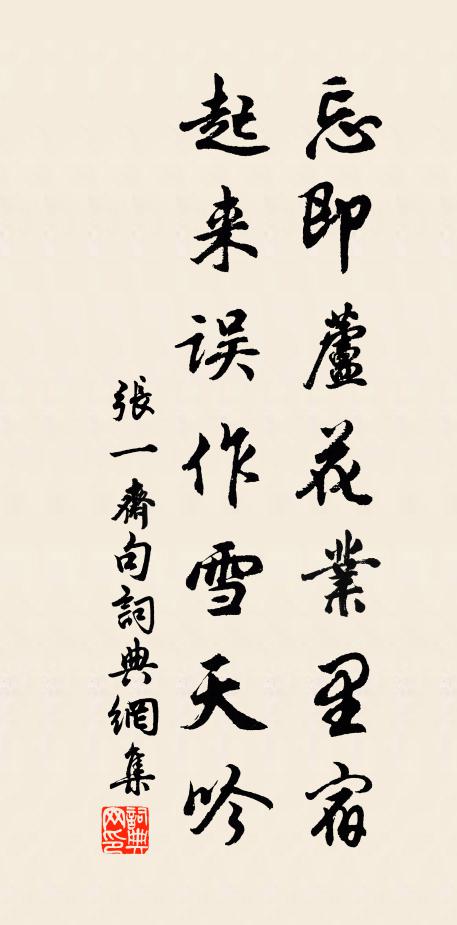 忘即蘆花業里宿
起来误作雪天吟
張一齋句詞典網集
詞典网印